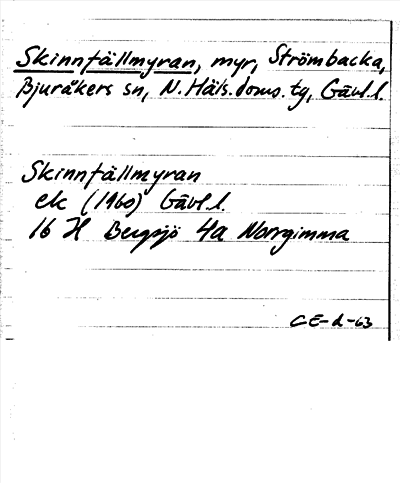 Skinnfällmyran, myr, Strömbacka,
Bjuråkers sn, N. Häls. doms. tg, Gävl.l.
Skinnfällmyran
ek (1960) Gävl.l.
16 H Bergsjö 4a Norrgimma
CE-d-63